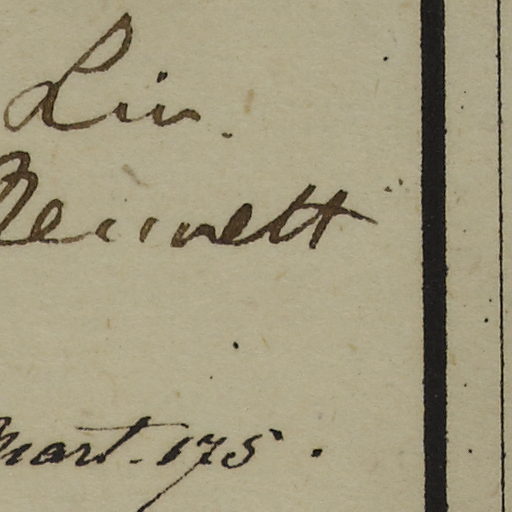 Lin.
Bennett
Mart. 175.